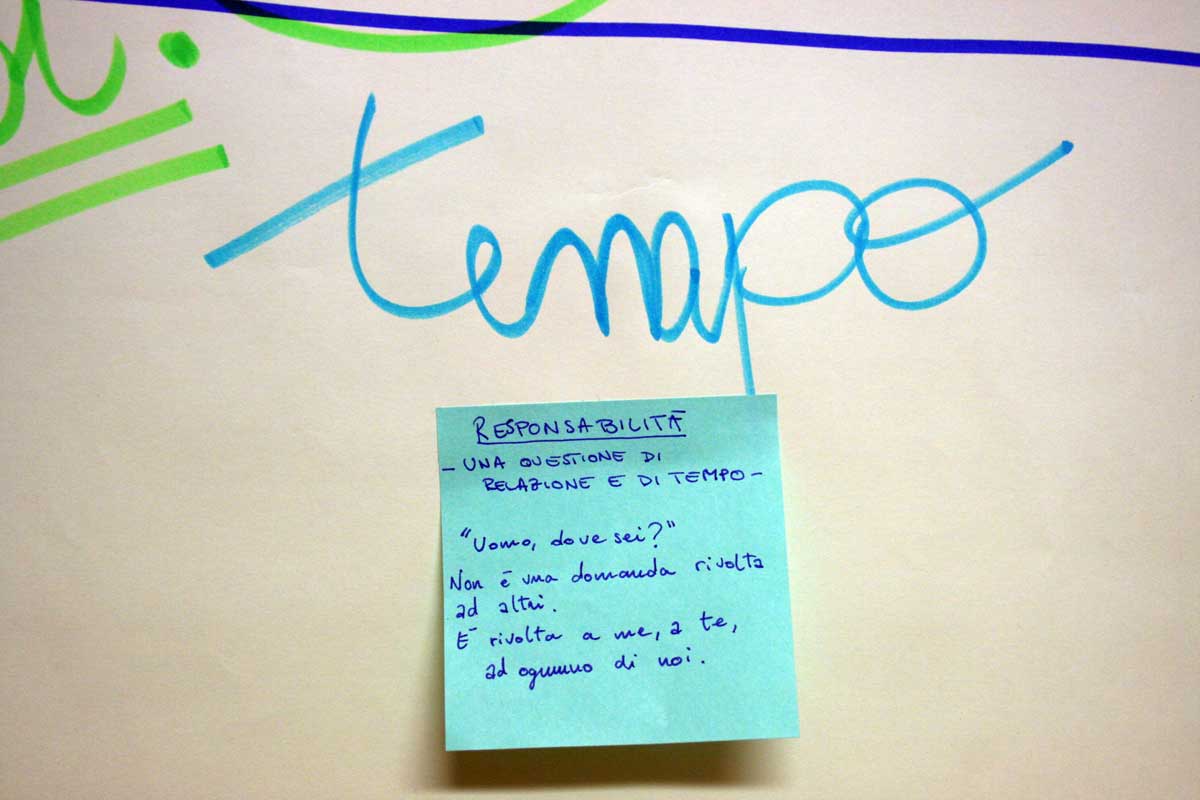 tempo
RESPONSABILITÀ
- UNA QUESTIONE DI
RELAZIONE E DI TEMPO -
"Uomo, dove sei?"
Non è una domanda rivolta
ad altri.
È rivolta a me, a te,
ad ognuno di noi.